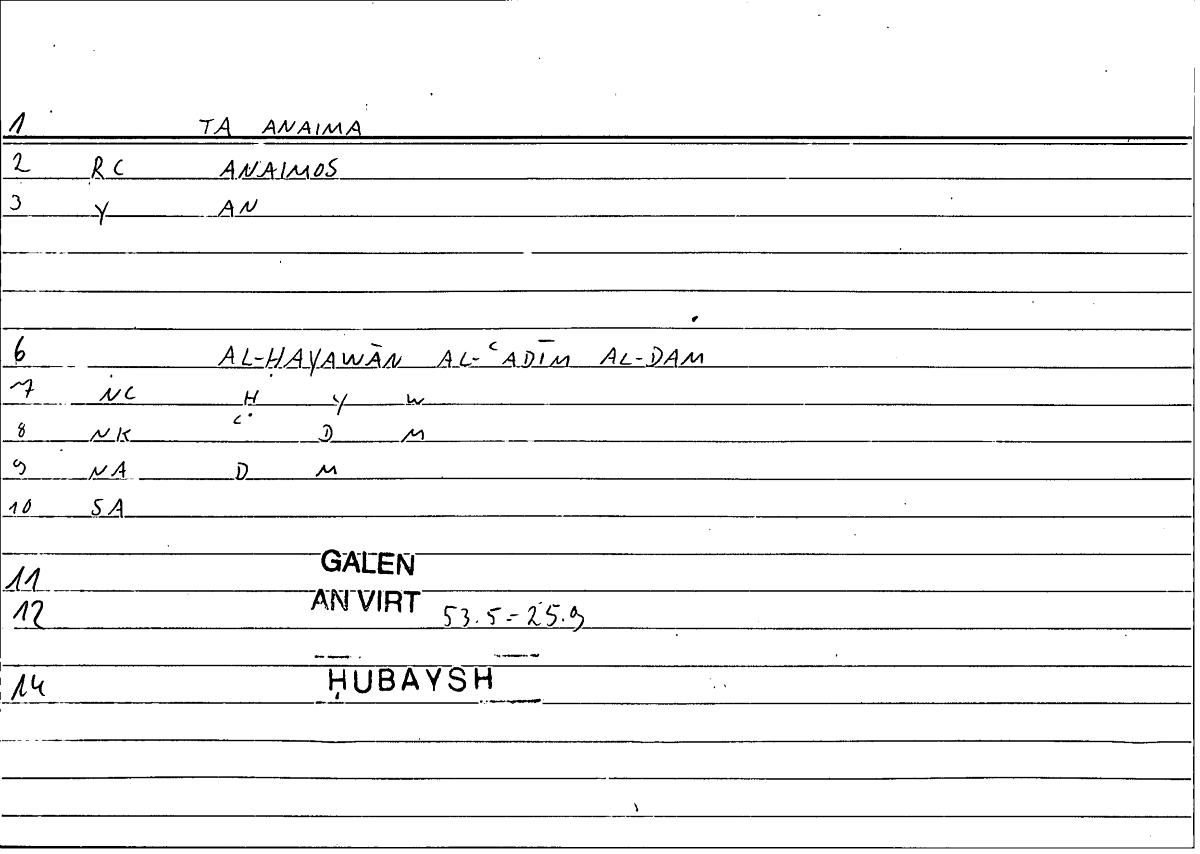 1 TA ANAIMA
2 RC ANAIMOS
3 Y AN
6 AL-ḤAYAWĀN AL-ʿADĪM AL-DAM
7 NC Ḥ Y W
8 NK ʿ D M
9 NA D M
10 SA
11 GALEN
12 AN VIRT 53.5=25.9
14 ḤUBAYSH